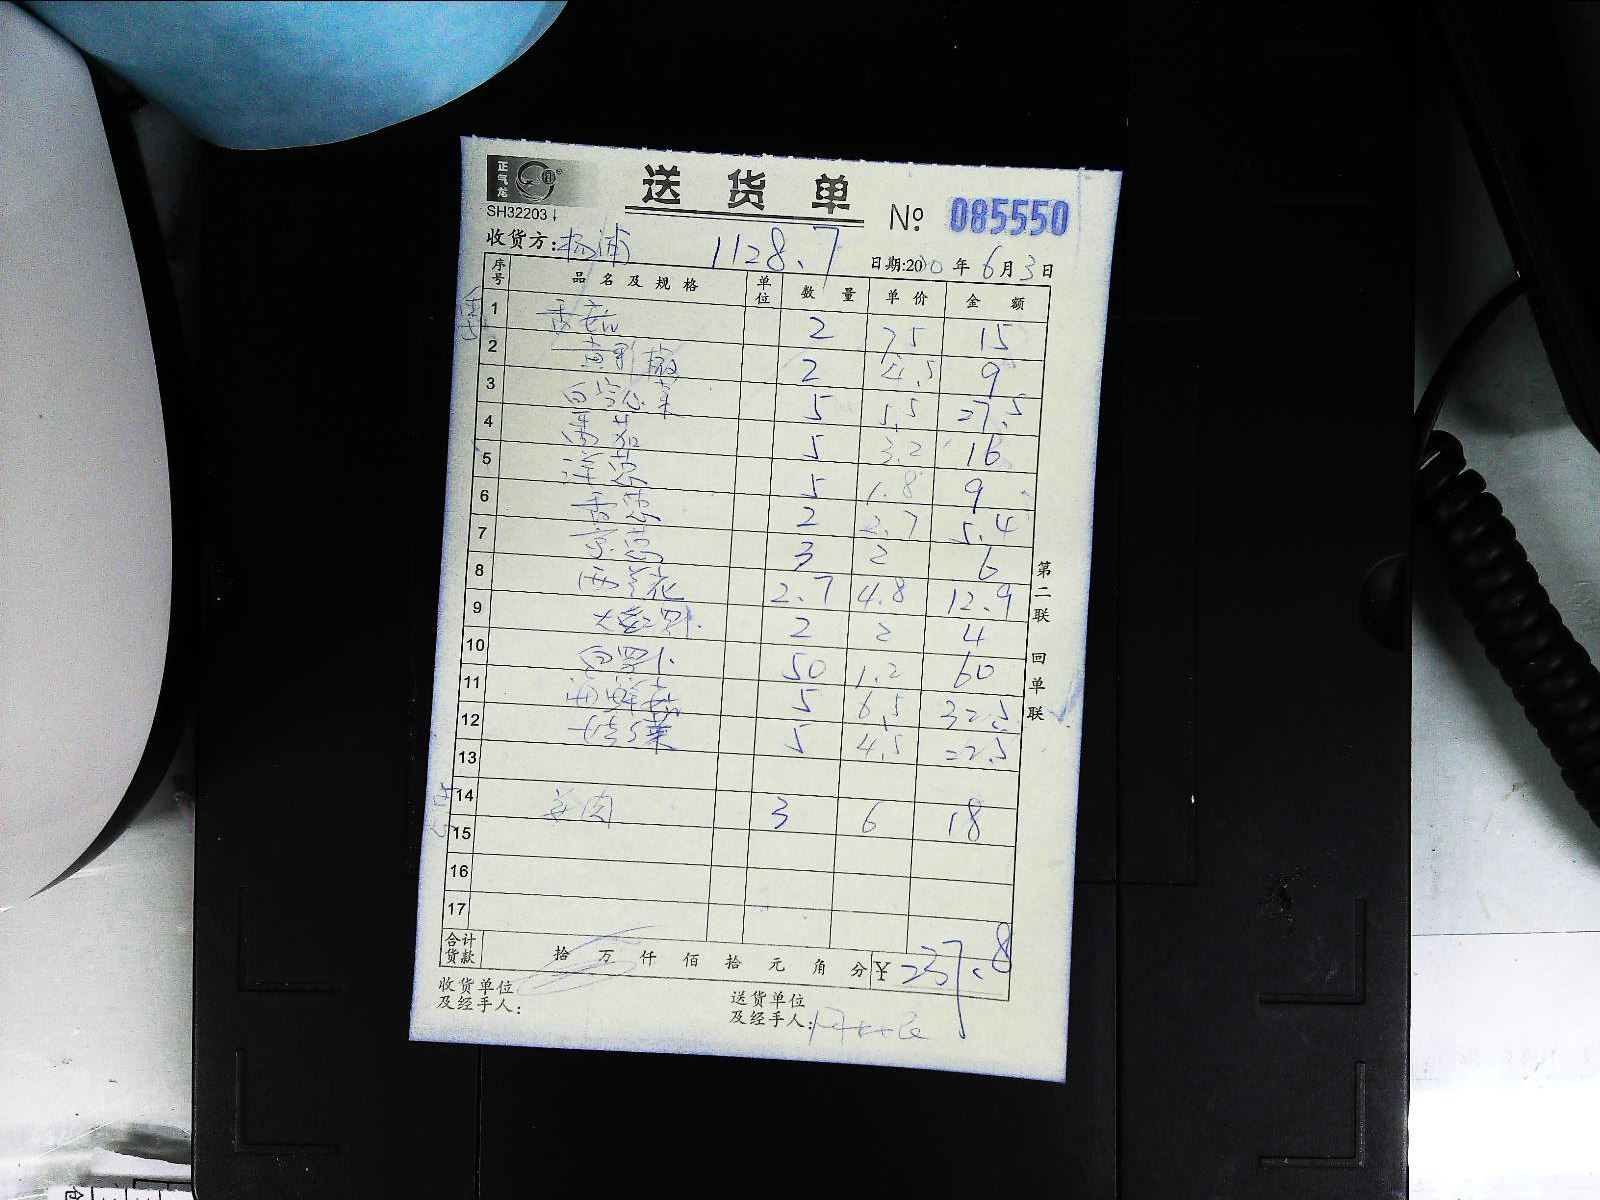 正气龙
SH32203
送货单
№ 085550
收货方:杨浦 1128.7 日期:2020年6月3日
序号 品名及规格 单位 数量 单价 金额
1 香菇 2 7.5 15
2 黄彩椒 2 4.5 9
3 白卷心菜 5 5.5 27.5
4 番茄 5 3.2 16
5 洋葱 5 1.8 9
6 香葱 2 2.7 5.4
7 京葱 3 2 6
8 西兰花 2.7 4.8 12.9
9 2 2 4
10 白罗卜 50 1.2 60
11 5 6.5 32.5
12 5 4.5 22.5
13
14 3 6 18
15
16
17
合计货款 拾 万 仟 佰 拾 元 角 分 ¥ 237.8
收货单位及经手人:
送货单位及经手人:
第二联 回单联